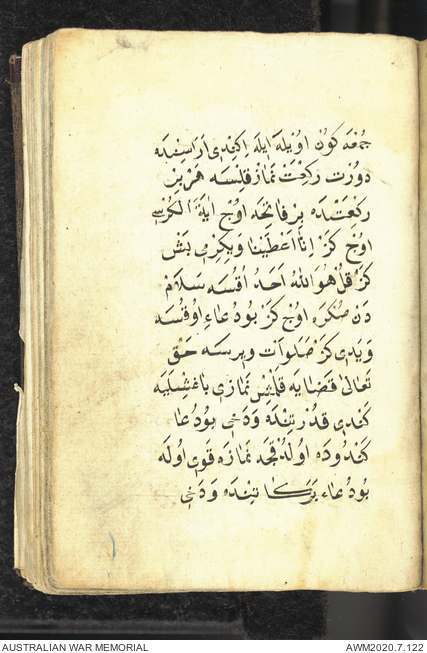 جُمْعَه كُونْ اُويْلَه ايلَه اِكِنْدِى اَرَاسِنْدَه
دُورْتْ رَكْعَتْ نَمَازْ قِلْسَه هَرْ بِرْ
رَكْعَتْدَه بِرْ فَاتِحَه اُوچْ ايَةُ الْكُرْسِى
اُوچْ كَزْ اِنَّا اَعْطَيْنَا وَيِكِرْمِى بَشْ
كَزْ قُلْ هُوَ اللّٰهُ اَحَدْ اُقُسَه سَلَامْ
دَنْ صُكْرَه اوچْ كَزْ بُو دُعَاءِ اُوقُسَه
وَيَدِى كَزْ صَلَوَاتْ وِيرْسَه حَقْ
تَعَالٰى قَضَايَه قَلْمِشْ نَمَازِى بَاغِشْلِيَه
كَنْدِى قُدْرَتِنْدَه وَدَخِى بُو دُعَا
كَنْدُودَه اُولْدُقْجَه نَمَازَه قَوِى اُولَه
بُو دُعَاء بَرَكَاتِنْدَه وَدَخِى
AUSTRALIAN WAR MEMORIAL
AWM2020.7.122